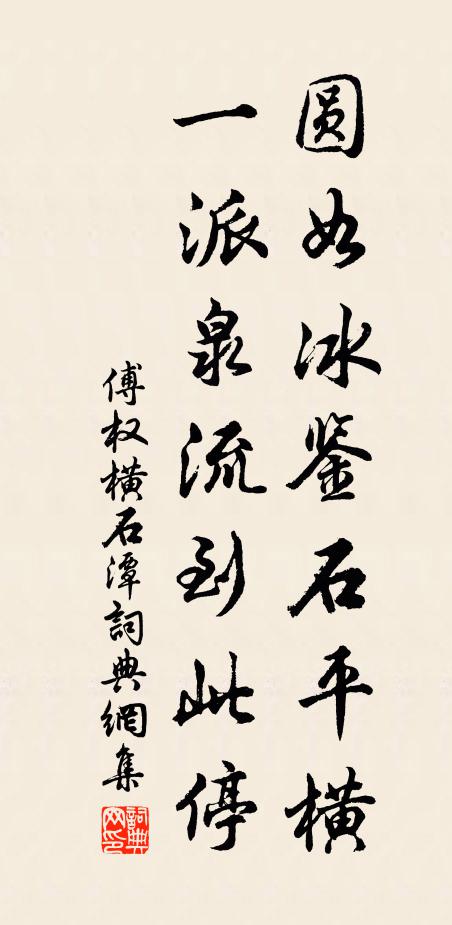 圓如冰鉴石平橫
一派泉流到此停
傅权橫石潭詞典網集
詞典网印